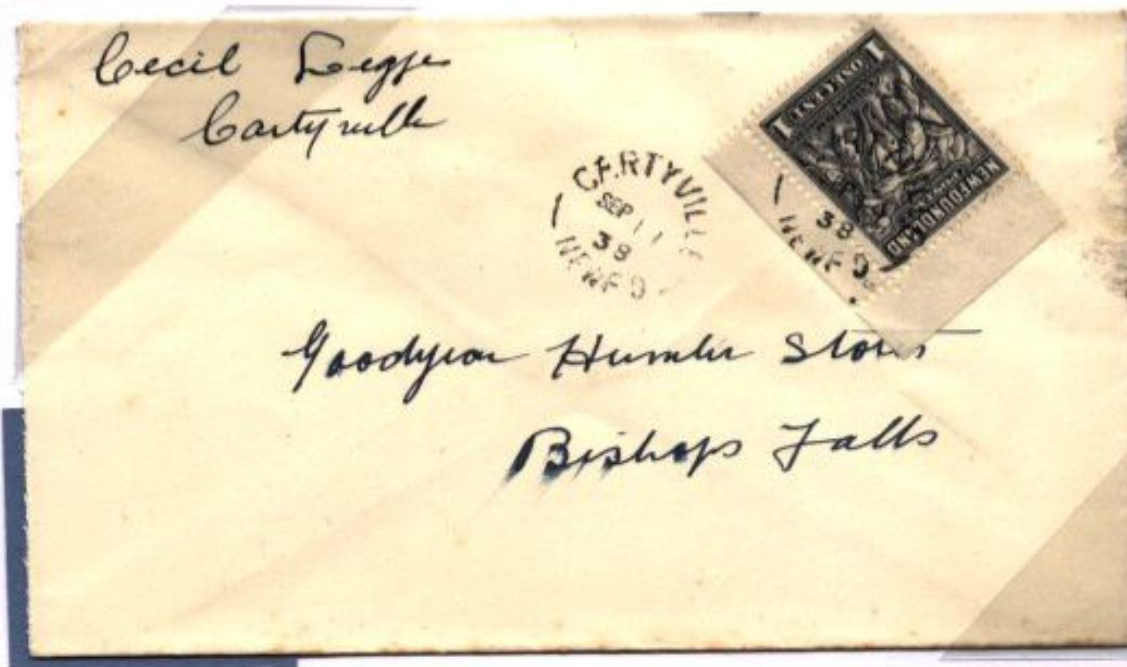 Cecil Legge
Cartyville
CARTYVILLE
SEP 11
38
NEWF'D
1 ONE CENT 1
NEWFOUNDLAND
38
NEWF'D
Goodyear Humber Stores
Bishops Falls